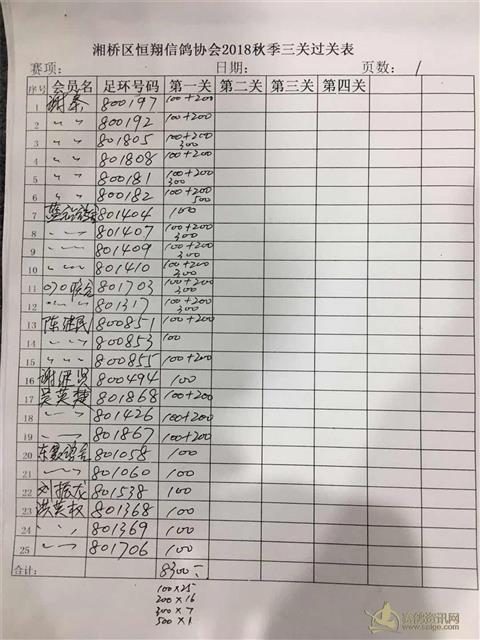 湘桥区恒翔信鸽协会2018秋季三关过关表
赛项: 日期: 页数: 1
序号 会员名 足环号码 第一关 第二关 第三关 第四关
1 谢条 800197 100+200
2 〃 〃 800192 100+200
3 〃 〃 801805 100+200 300
4 〃 〃 801808 100+200
5 〃 〃 800181 100+200 300
6 〃 〃 800182 100+200 500
7 801404 100
8 〃 〃 801407 100+200 300
9 〃 〃 801409 100+200 300
10 〃 〃 801410 100+200 300
11 070联合 801703 100+200 300
12 〃 〃 801317 100+200 300
13 陈建民 800851 100+200
14 〃 〃 800853 100
15 〃 〃 800855 100+200
16 谢继贤 800494 100
17 吴英楚 801868 100+200
18 〃 〃 801426 100+200
19 〃 〃 801867 100+200
20 801058 100
21 〃 〃 801060 100
22 刘振龙 801538 100
23 洪英权 801368 100
24 〃 〃 801369 100
25 〃 〃 801706 100
合计: 8300-
100×25
200×16
300×7
500×1
赛鸽资讯网
www.saige.com